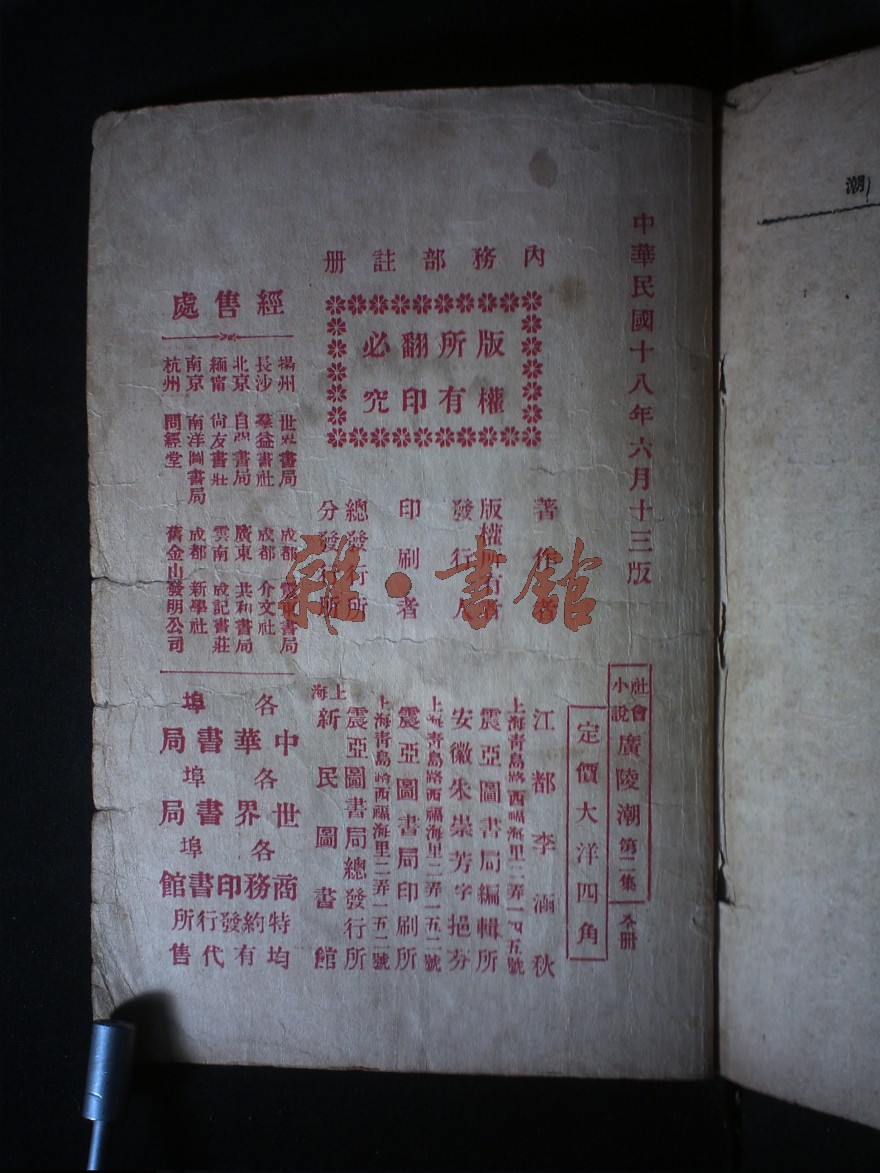 中華民國十八年六月十三版
社會小說 廣陵潮 第二集 全册
定價大洋四角
內務部註册
版權所有
翻印必究
著作者 江都李涵秋
版權所有者 震亞圖書局編輯所
上海青島路西福海里二弄一四五號
發行人 安徽朱崇芳字挹芬
印刷者 震亞圖書局印刷所
上海青島路西福海里二弄一五二號
總發行所 震亞圖書局總發行所
上海青島路西福海里二弄一五二號
分發行所 上海新民圖書館
經售處
揚州 世界書局 成都 書局
長沙 羣益書社 成都 介文社
北京 自強書局 廣東 共和書局
緬甯 尙友書莊 雲南 成記書莊
南京 南洋圖書局 成都 新學社
杭州 問經堂 舊金山發明公司
各埠中華書局
各埠世界書局
各埠商務印書館
特約發行所
均有代售
潮
雜·書館